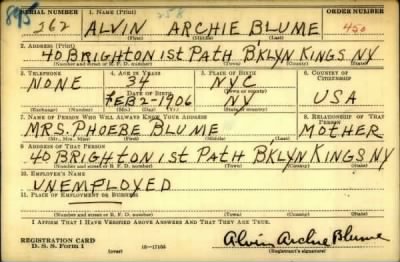 SERIAL NUMBER 1. NAME (Print) ORDER NUMBER
895 362 ALVIN ARCHIE BLUME 450
(First) (Middle) (Last)
2. ADDRESS (Print)
40 BRIGHTON 1ST PATH B'KLYN KINGS NY
(Number and street or R. F. D. number) (Town) (County) (State)
3. TELEPHONE 4. AGE IN YEARS 5. PLACE OF BIRTH 6. COUNTRY OF CITIZENSHIP
NONE 34 NYC
DATE OF BIRTH (Town or county)
FEB 2-1906 NY USA
(Exchange) (Number) (Mo.) (Day) (Yr.) (State or country)
7. NAME OF PERSON WHO WILL ALWAYS KNOW YOUR ADDRESS 8. RELATIONSHIP OF THAT PERSON
MRS. PHOEBE BLUME MOTHER
(Mr., Mrs., Miss) (First) (Middle) (Last)
9. ADDRESS OF THAT PERSON
40 BRIGHTON 1ST PATH B'KLYN KINGS NY
(Number and street or R. F. D. number) (Town) (County) (State)
10. EMPLOYER'S NAME
UNEMPLOYED
11. PLACE OF EMPLOYMENT OR BUSINESS
(Number and street or R. F. D. number) (Town) (County) (State)
I AFFIRM THAT I HAVE VERIFIED ABOVE ANSWERS AND THAT THEY ARE TRUE.
REGISTRATION CARD
D. S. S. Form 1 (over) 16—17105 Alvin Archie Blume
(Registrant's signature)